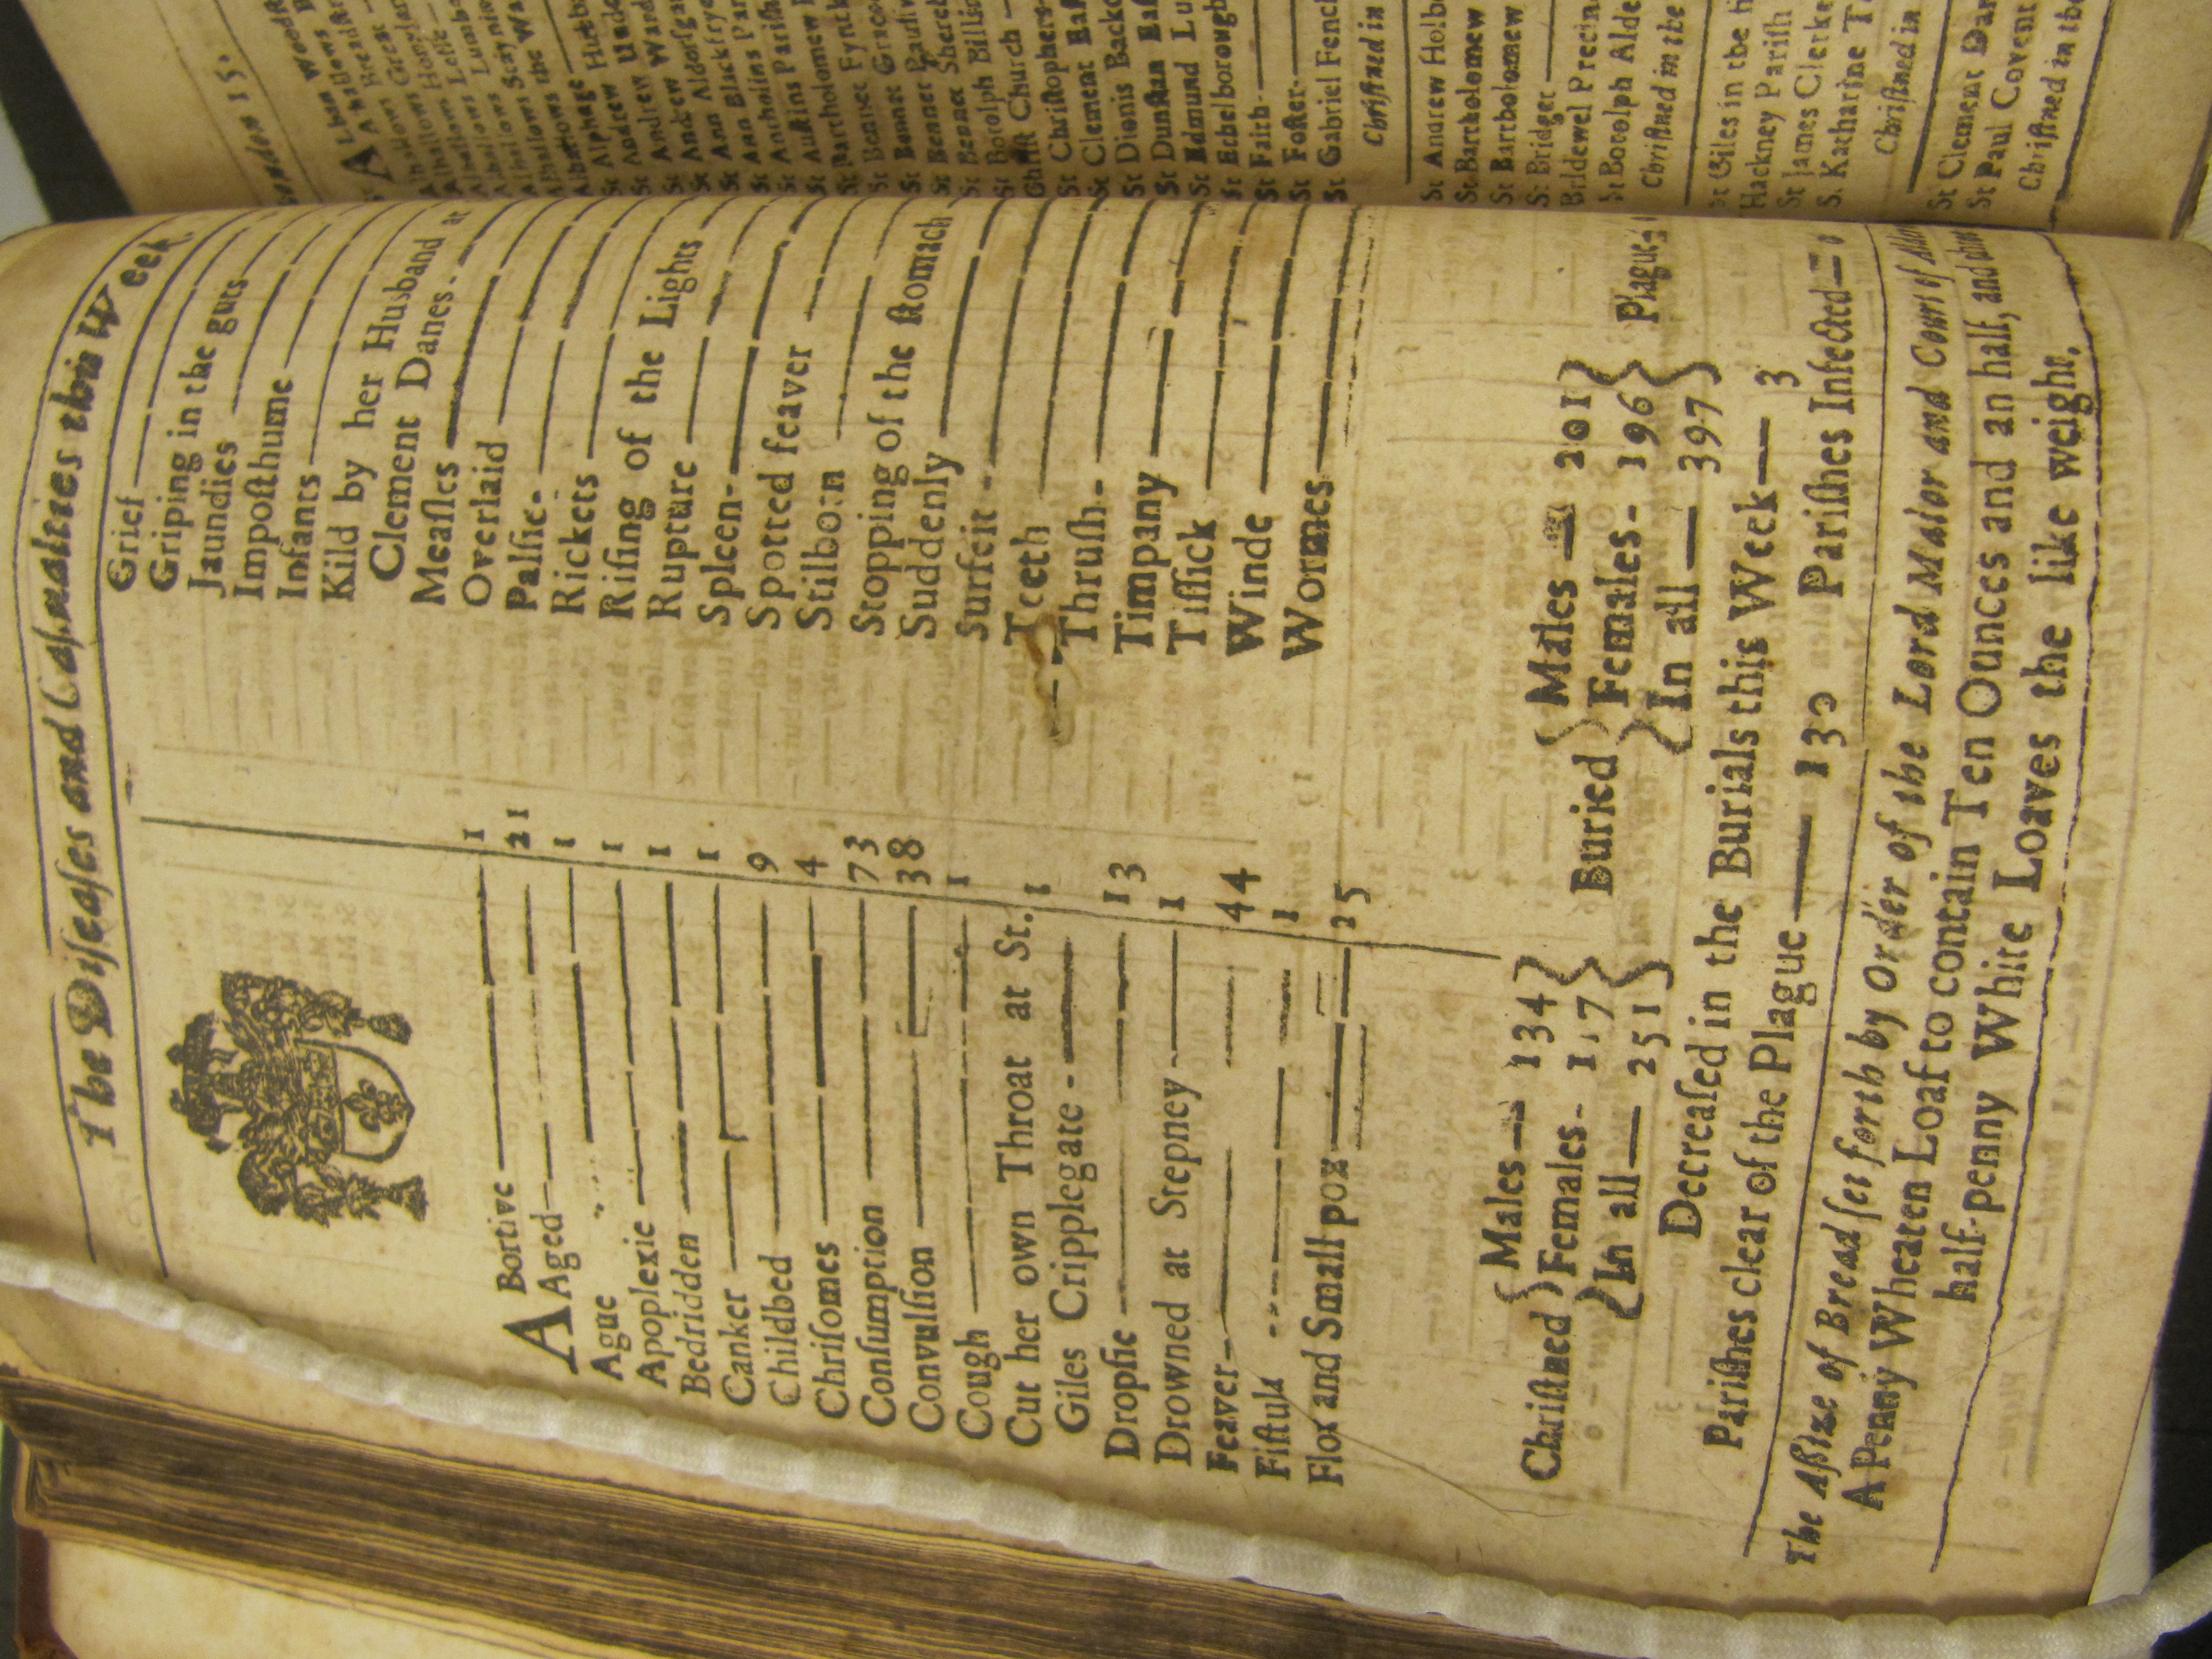 The Diſeaſes and Caſualties this Week.
ABortive 1
Aged 21
Ague 1
Apoplexie 1
Bedridden 1
Canker 1
Childbed 9
Chriſomes 4
Conſumption 73
Convulſion 38
Cough 1
Cut her own Throat at St.
Giles Cripplegate - 1
Dropſie 13
Drowned at Stepney 1
Feaver 44
Fiſtula 1
Flox and Small pox 25
Grief
Griping in the guts
Jaundies
Impoſthume
Infants
Kild by her Husband at
Clement Danes.
Meaſles
Overlaid
Palſie
Rickets
Riſing of the Lights
Rupture
Spleen
Spotted feaver
Stilborn
Stopping of the ſtomach
Suddenly
Surfeit
Teeth
Thruſh
Timpany
Tiſſick
Winde
Wormes
Chriſtned { Males 134 Females In all 251 }
Buried { Males 201 Females 196 In all 397 } Plague
Decreaſed in the Burials this Week 3
Pariſhes clear of the Plague 130 Pariſhes Infected 0
The Aſſize of Bread ſet forth by Order of the Lord Maior and Court of
A Penny Wheaten Loaf to contain Ten Ounces and an half, and three
half-penny White Loaves the like weight.
15.
St Alban
St Alphage
St Andrew
St Andrew
St Andrew
St Ann
St Ann Blackfry
St Antholins Pariſh
St Auſtins Pariſh
St Bartholomew
St Bennet Fynck
St Bennet
St Bennet
St Bennet
St Botolph Billin
Chriſt Church
St Chriſtophers
St Clement Eaſ
St Dionis Backc
St Dunſtan Eaſ
St Edmund Lu
St Ethelborough
St Faith
St Foſter
St Gabriel Fenc
Chriſtned in
St Andrew Holb
St Bartholomew
St Bartholomew
St Bridget
Bridewel Precin
St Botolph Alde
Chriſtned in the
St Giles in the
Hackney Pariſh
St James Clerke
S. Katharine T
Chriſtned in
St Clement Dan
St Paul Covent
Chriſtned in the